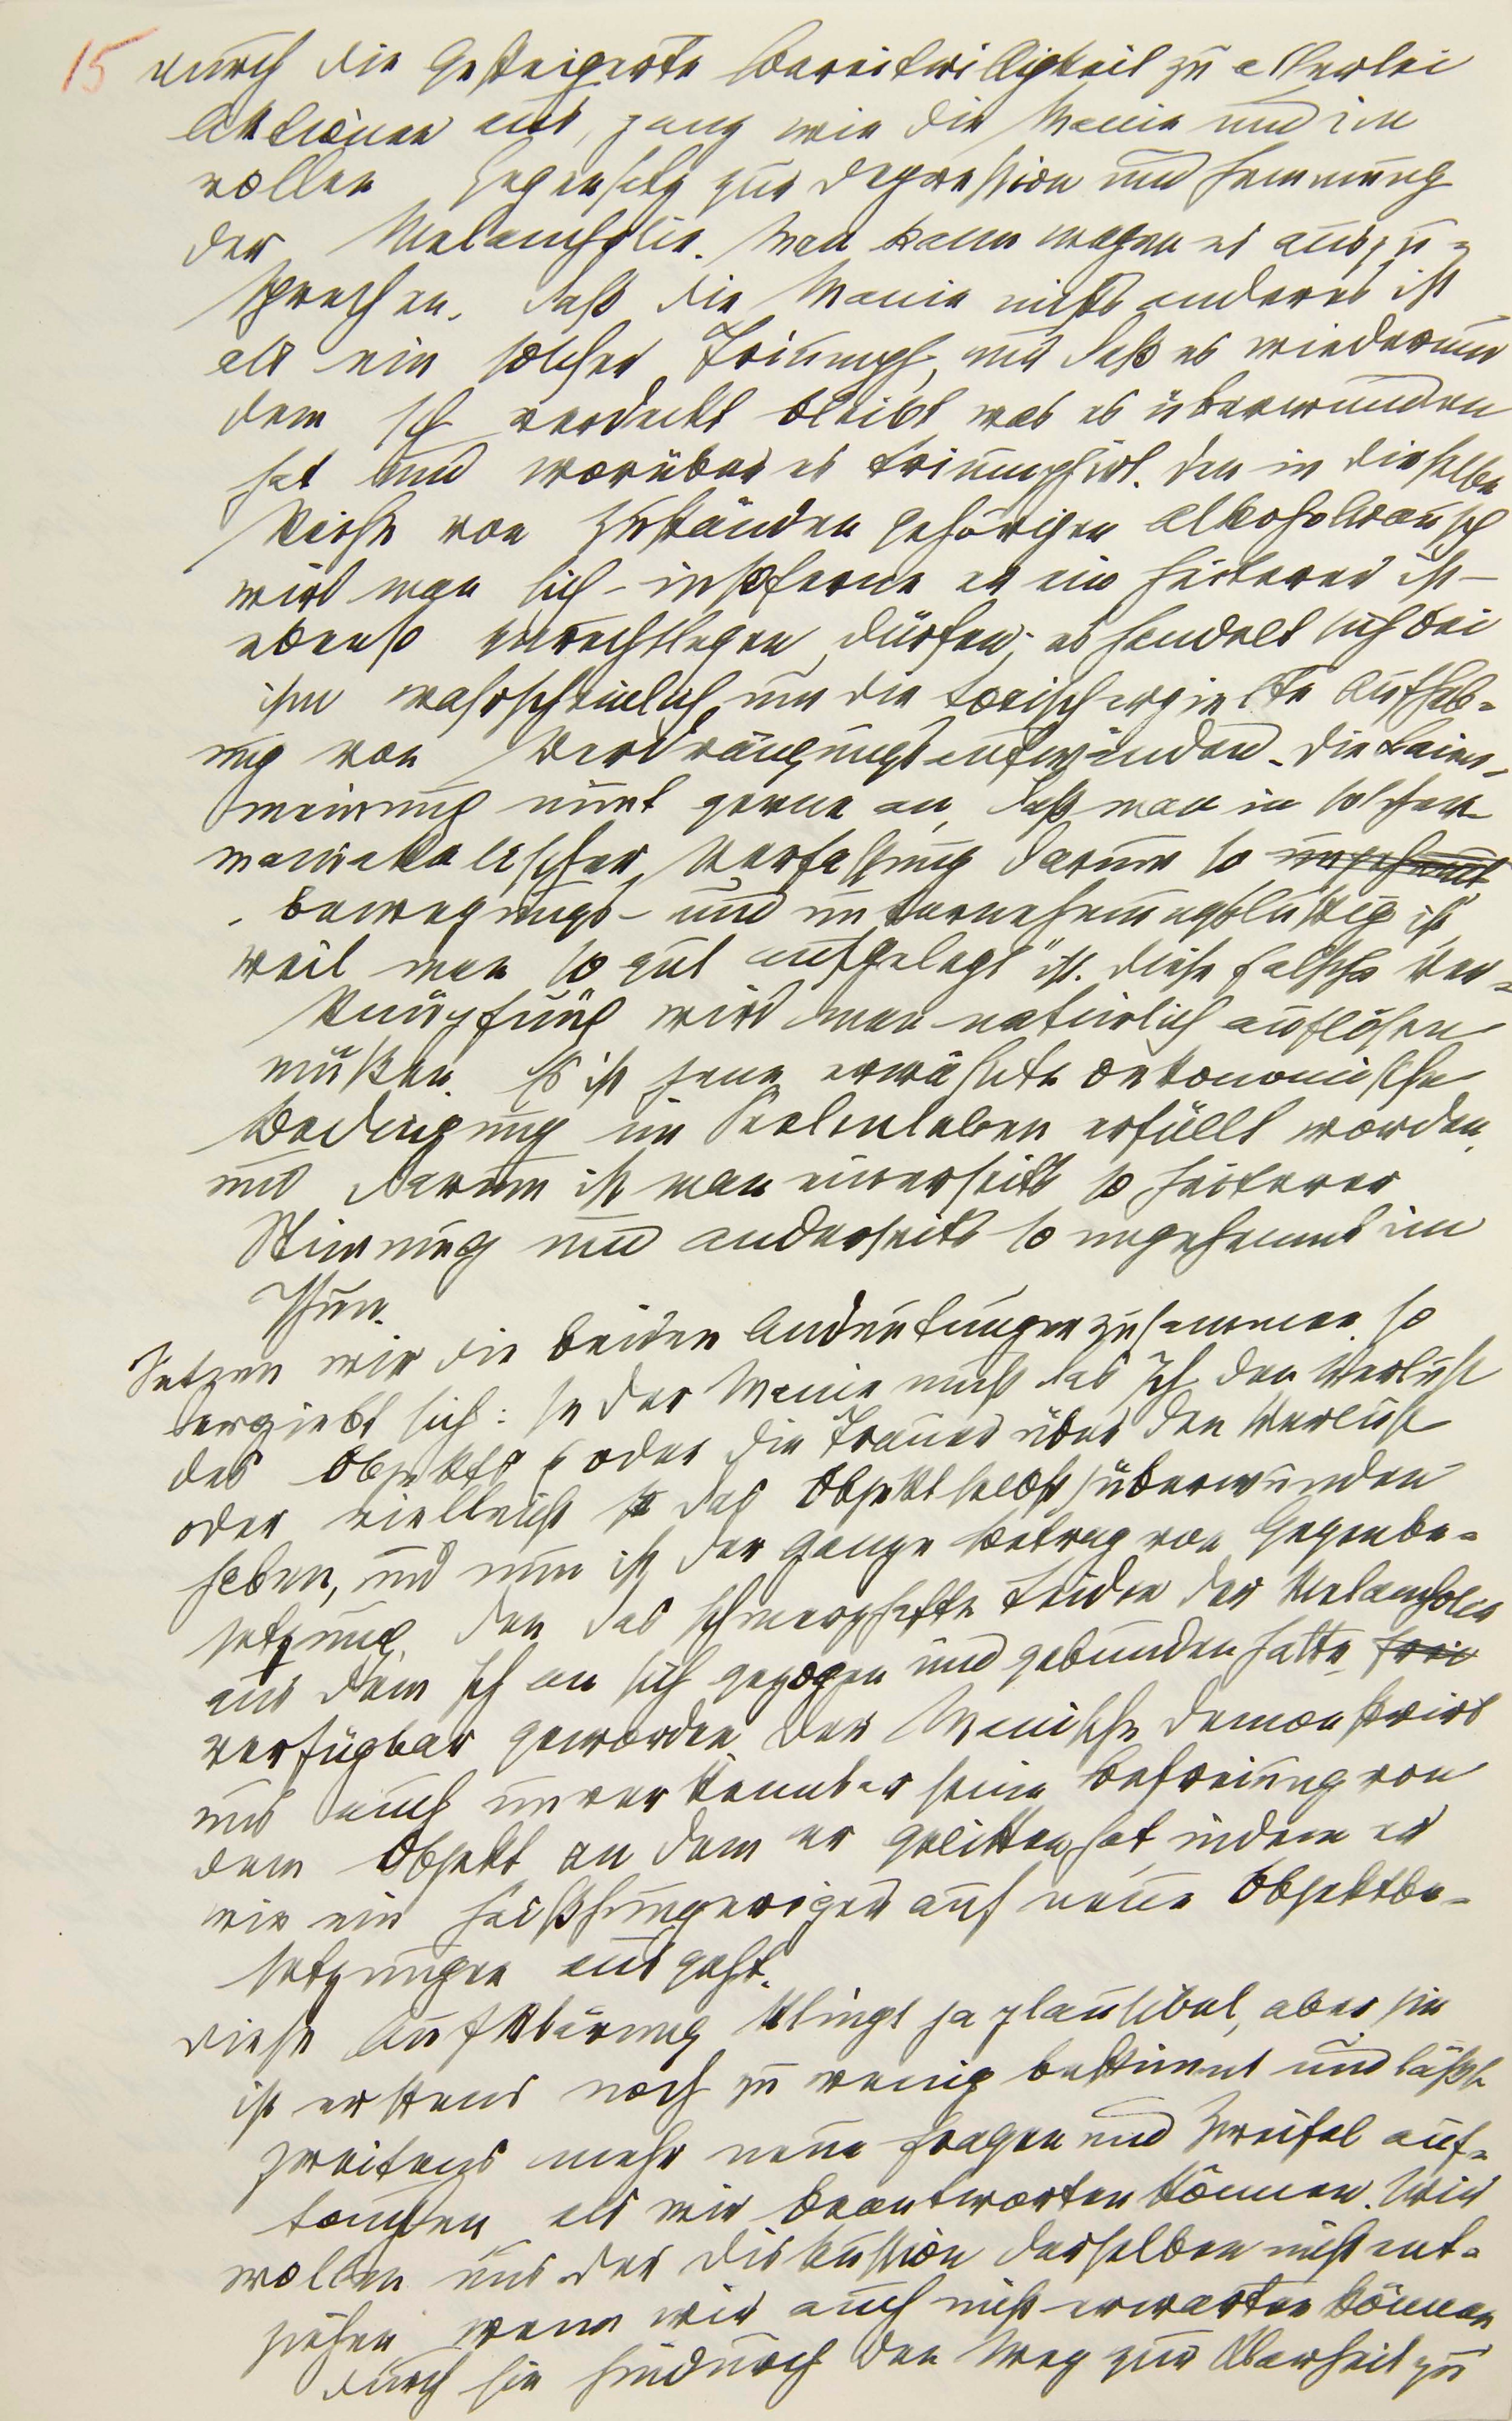 15 durch die gesteigerte Bereitwilligkeit zu allerlei
Aktionen aus, ganz wie die Manie und im
vollen Gegensatz zur Depression und Hemmung
der Melancholie. Man kann wagen es auszu=
sprechen, daß die Manie nichts anderes ist
als ein solcher Triumph, nur daß es wiederum
dem Ich verdeckt bleibt was es überwunden
hat und worüber es triumphirt. Den in dieselbe
Reihe von Zuständen gehörigen Alkoholrausch
wird man sich – insoferne er ein heiterer ist –
ebenso zurechtlegen dürfen; es handelt sich bei
ihm wahrscheinlich um die toxisch erzielte Aufheb=
ung von Verdrängungsaufwänden. Die Laien=
meinung nimt gerne an, daß man in solcher
maniakalischer Verfassung darum so ungehemmt
bewegungs- und unternehmungslustig ist,
weil man so gut „aufgelegt" ist. Diese falsche Ver=
knüpfung wird man natürlich auflösen
müssen. Es ist jene erwähnte oekonomische
Bedingung im Seelenleben erfüllt worden,
und darum ist man einerseits so heiterer
Stimmung und anderseits so ungehemmt im
Thun.
Setzen wir die beiden Andeutungen zusammen, so
ergiebt sich: In der Manie muß das Ich den Verlust
des Objekts (oder die Trauer über den Verlust
oder vielleicht das Objekt selbst) überwunden
haben, und nun ist der ganze Betrag von Gegenbe=
setzung, den das schmerzhafte Leiden der Melancholie
aus dem Ich an sich gezogen und gebunden hatte frei
verfügbar geworden. Der Manische demonstrirt
uns auch unverkennbar seine Befreiung von
dem Objekt an dem er gelitten hat, indem er
wie ein Heißhungeriger auf neue Objektbe=
setzungen ausgeht.
Diese Aufklärung klingt ja plausibel, aber sie
ist erstens noch zu wenig bestimmt und läßt
zweitens mehr neue Fragen und Zweifel auf=
tauchen, als wir beantworten können. Wir
wollen uns der Diskussion derselben nicht ent=
ziehen, wenn wir auch nicht erwarten können
durch sie hindurch den Weg zur Klarheit zu